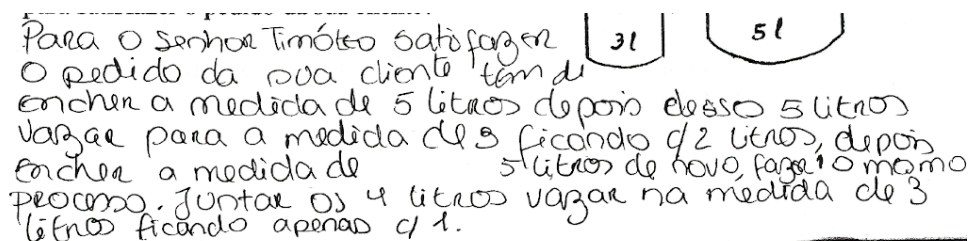 Para o senhor Timóteo satisfazer 3l 5l
o pedido da sua cliente têm de
encher a medida de 5 litros depois desso 5 litros
vazar para a medida de 3 ficando c/2 litros, depois
encher a medida de 5 litros de novo, fazer o mesmo
processo. Juntar os 4 litros vazar na medida de 3
litros ficando apenas c/ 1.